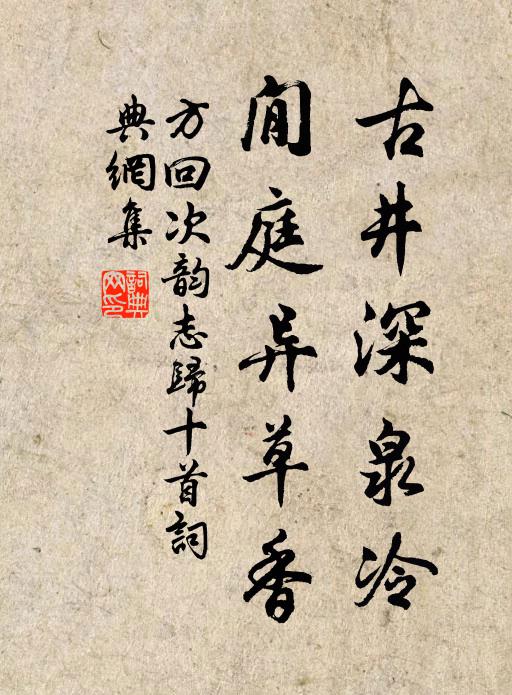 古井深泉冷
閒庭异草香
方回次韵志歸十首詞
典網集
詞典網印